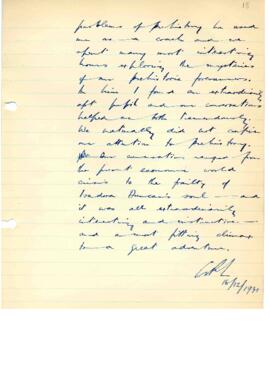 18
problems of prehistory he used
me as a coach and we
spent many most interesting
hours exploring the mysteries
of our prehistoric forerunners.
In him I found an extraordinarily
apt pupil and our conversations
helped us both tremendously.
We naturally did not confine
our attention to prehistory.
Our conversations ranged from
the present economic world
crisis to the frailty of
Isadora Duncan's soul – and
it was all extraordinarily
interesting and instructive –
and a most fitting climax
to a great adventure.
16/12/1931